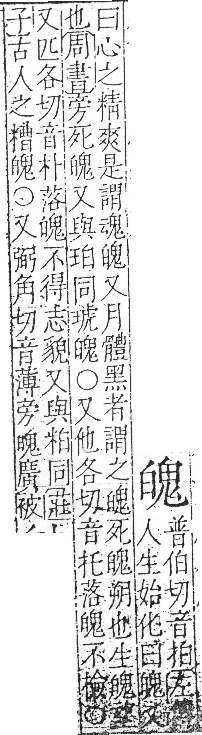 魄 普伯切音拍左傳
人生始化曰魄又
曰心之精爽是謂魂魄又月體黑者謂之魄死魄朔也生魄望
也周書旁死魄又與珀同琥魄○又他各切音托落魄不檢○
又匹各切音朴落魄不得志貌又與粕同莊
子古人之糟魄○又弼角切音薄旁魄廣被